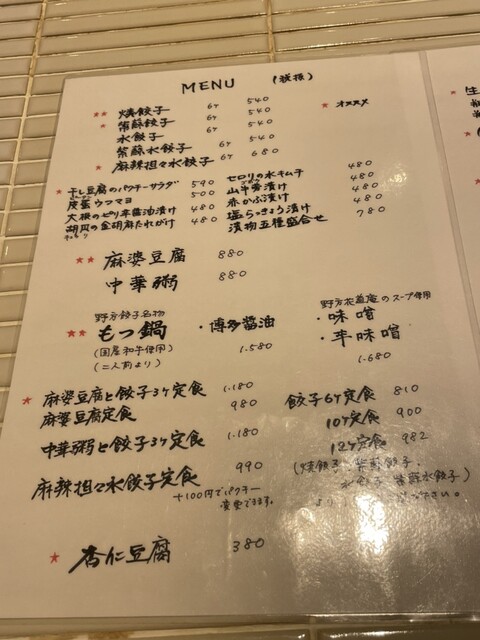 MENU (税抜)
★★ 焼餃子 6ケ 540
★ 紫蘇餃子 6ケ 540
水餃子 6ケ 540
紫蘇水餃子 6ケ 540
★ 麻辣担々水餃子 6ケ 680
★ オススメ
★ 干し豆腐のパクチーサラダ 590
皮蛋ウフマヨ 500
大根のピリ辛醤油漬け 480
胡瓜の金胡麻たれがけ 480
セロリの水キムチ 480
山牛蒡漬け 480
赤かぶ漬け 480
塩らっきょう漬け 480
漬物五種盛合せ 780
★★ 麻婆豆腐 880
中華粥 880
野方餃子名物
★★ もつ鍋
(国産和牛使用)
(二人前より)
・博多醤油
1.580
野方花蔓庵のスープ使用
・味噌
・辛味噌
1.680
★ 麻婆豆腐と餃子3ケ定食 1.180
麻婆豆腐定食 980
中華粥と餃子3ケ定食 1.180
麻辣担々水餃子定食 990
+100円でパクチー
変更できます。
餃子6ケ定食 810
10ケ定食 900
12ケ定食 982
(焼餃子、紫蘇餃子、
水餃子、紫蘇水餃子)
★ 杏仁豆腐 380
★ 生